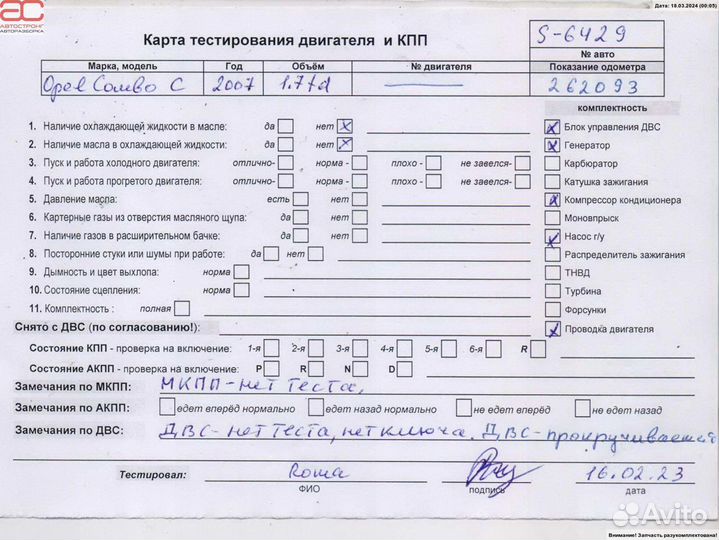 Дата: 18.03.2024 (00:05)
АС
АВТОСТРОНГ
АВТОРАЗБОРКА
Карта тестирования двигателя и КПП
S-6429
№ авто
Марка, модель Год Объём № двигателя Показание одометра
Opel Combo C 2007 1.7td 262093
комплектность
1. Наличие охлаждающей жидкости в масле: да нет x Блок управления ДВС
2. Наличие масла в охлаждающей жидкости: да нет x Генератор
3. Пуск и работа холодного двигателя: отлично- норма - плохо - не завелся- Карбюратор
4. Пуск и работа прогретого двигателя: отлично- норма - плохо - не завелся- Катушка зажигания
5. Давление масла: есть нет Компрессор кондиционера
6. Картерные газы из отверстия масляного щупа: да нет Моновпрыск
7. Наличие газов в расширительном бачке: да нет Насос г/у
8. Посторонние стуки или шумы при работе: да нет Распределитель зажигания
9. Дымность и цвет выхлопа: норма ТНВД
10. Состояние сцепления: норма Турбина
11. Комплектность : полная Форсунки
Снято с ДВС (по согласованию!): Проводка двигателя
Состояние КПП - проверка на включение: 1-я 2-я 3-я 4-я 5-я 6-я R
Состояние АКПП - проверка на включение: P R N D
Замечания по МКПП: МКПП-нет теста,
Замечания по АКПП: едет вперёд нормально едет назад нормально не едет вперёд не едет назад
Замечания по ДВС: ДВС-нет теста, нет ключа. ДВС-прокручивается
Тестировал: Roma 16.02.23
ФИО подпись дата
Avito
Внимание! Запчасть разукомплектована!